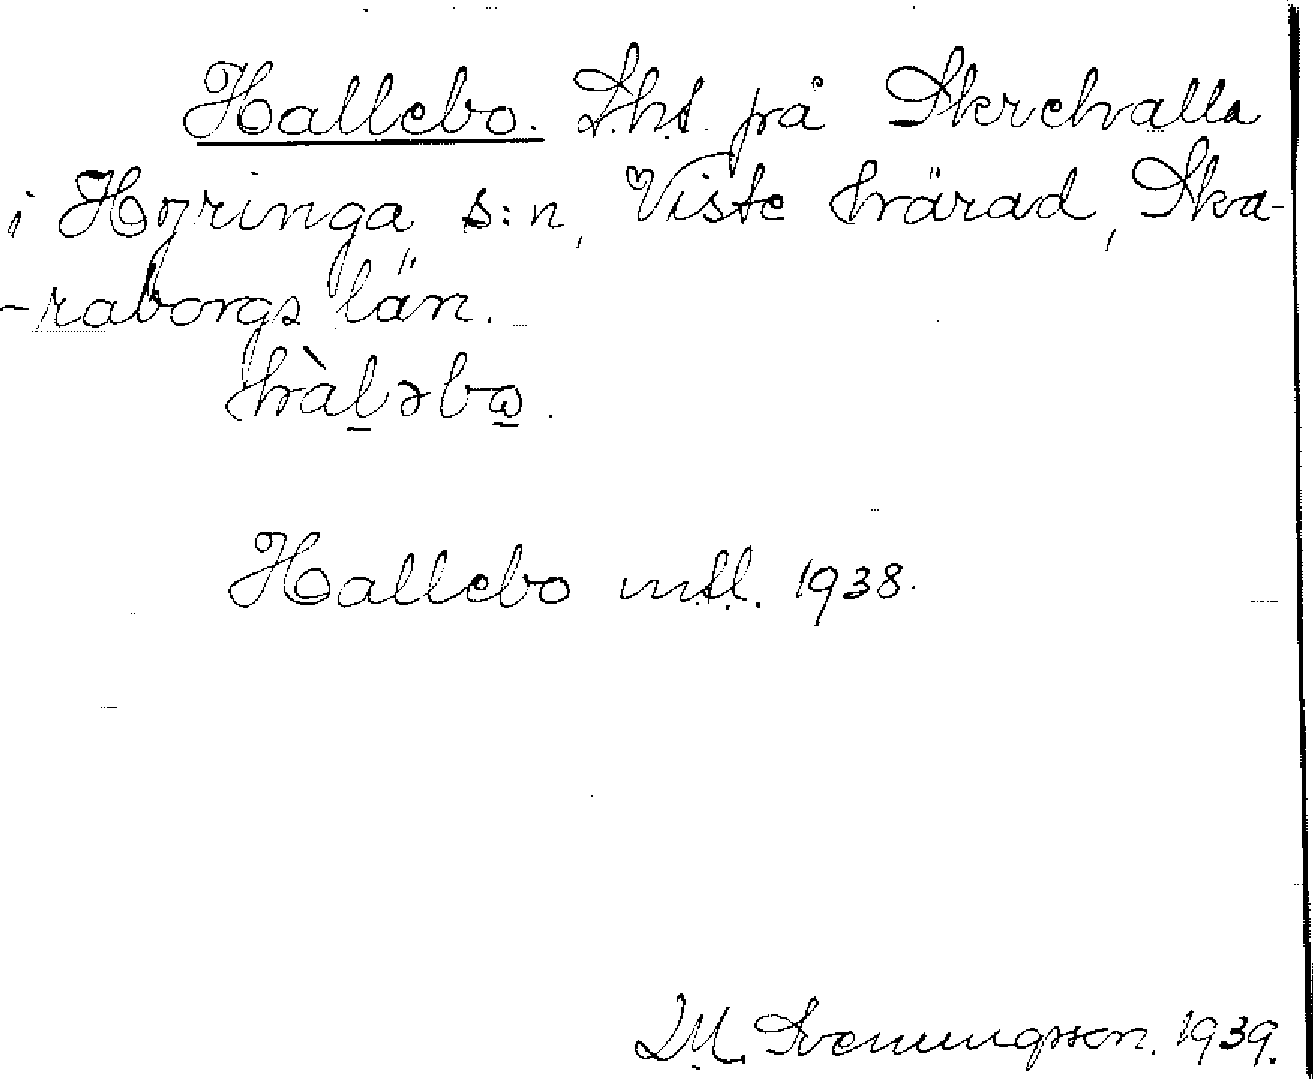 Hallebo. T.ht. på Skrehvalla
i Hyringa s:n, Viste härad, Ska-
-raborgs län.
hàləbo.
Hallebo mtl. 1938.
Svenungsson. 1939.